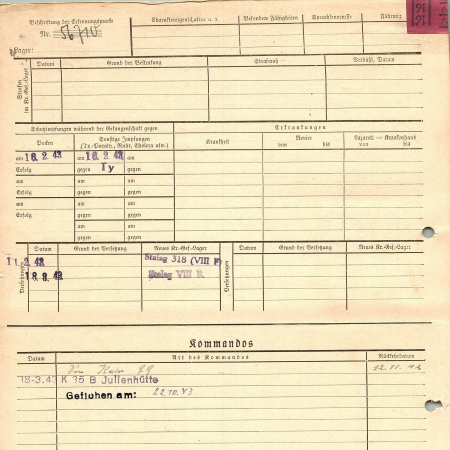 Beschriftung der Erkennungsmarke
Nr.
Lager:
Charaktereigenschaften u. ä.
Besondere Fähigkeiten
Sprachkenntnisse
Führung
Strafen im Kr.-Gef.-Lager
Datum
Grund der Bestrafung
Strafmaß
Verbüßt, Datum
Schutzimpfungen während der Gefangenschaft gegen
Erkrankungen
Pocken
Sonstige Impfungen
(Ty.-Paraty., Ruhr, Cholera usw.)
Krankheit
Revier
von bis
Lazarett — Krankenhaus
von bis
am 16. 2. 43 am 16. 2. 43 am
Erfolg gegen Ty gegen
am am am
Erfolg gegen gegen
am am am
Erfolg gegen gegen
am am
gegen gegen
Versetzungen
Datum
Grund der Versetzung
Neues Kr.-Gef.-Lager
Versetzungen
Datum
Grund der Versetzung
Neues Kr.-Gef.-Lager
11. 2. 43 Stalag 318 (VIII F)
18. 3. 43 Stalag VIII B.
Kommandos
Datum
Art des Kommandos
Rückkehrdatum
18-3.43 K 35 B Julienhütte
Geflohen am: 22.10.43